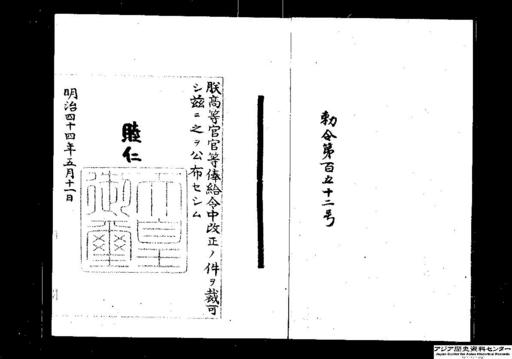 勅令第百五十二号
朕高等官官等俸給令中改正ノ件ヲ裁可
シ茲ニ之ヲ公布セシム
睦仁
天皇御璽
明治四十四年五月十一日
アジア歴史資料センター
Japan Center for Asian Historical Records